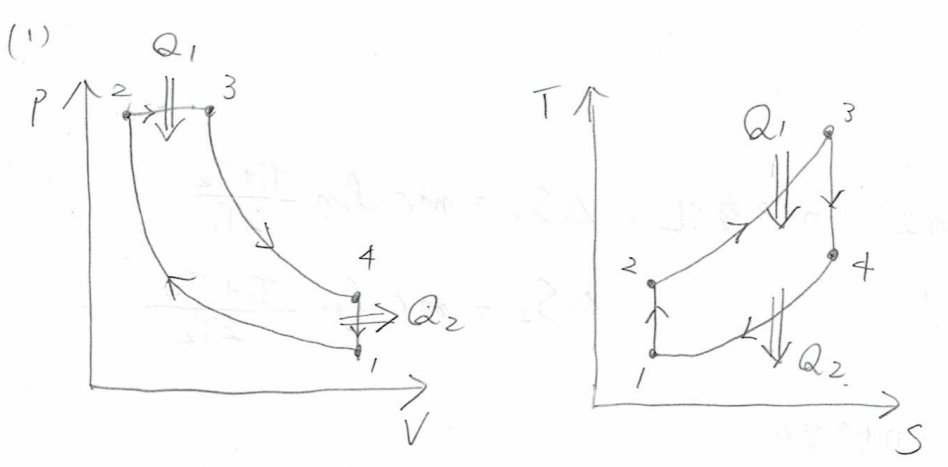 (1)
Q1
P
2
3
4
Q2
1
V
T
Q1
3
2
4
1
Q2
S